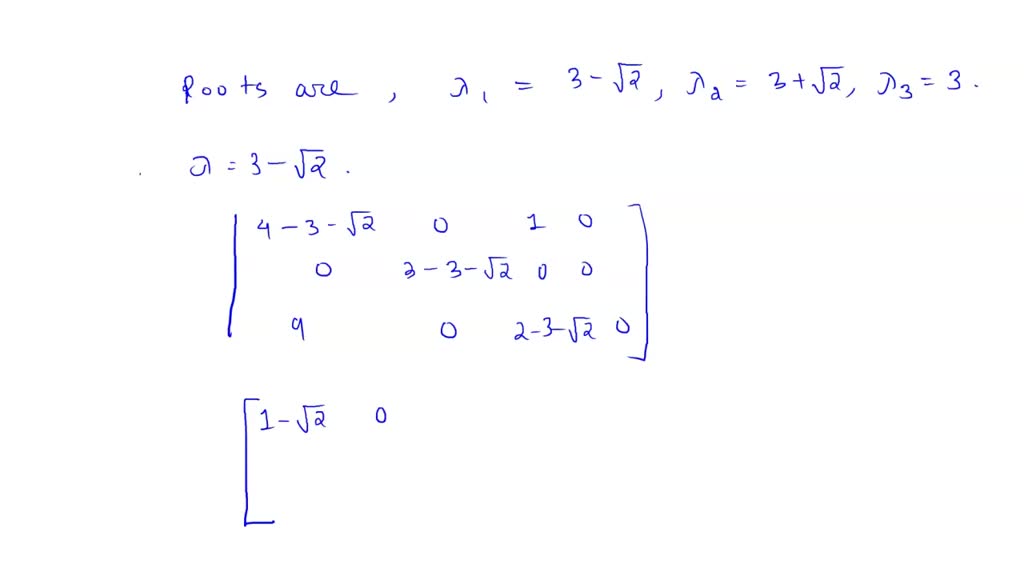 Roots are, λ₁ = 3-√2, λ₂ = 3+√2, λ₃ = 3.
λ = 3-√2.
4-3-√2 0 1 0
0 3-3-√2 0 0
9 0 2-3-√2 0
1-√2 0